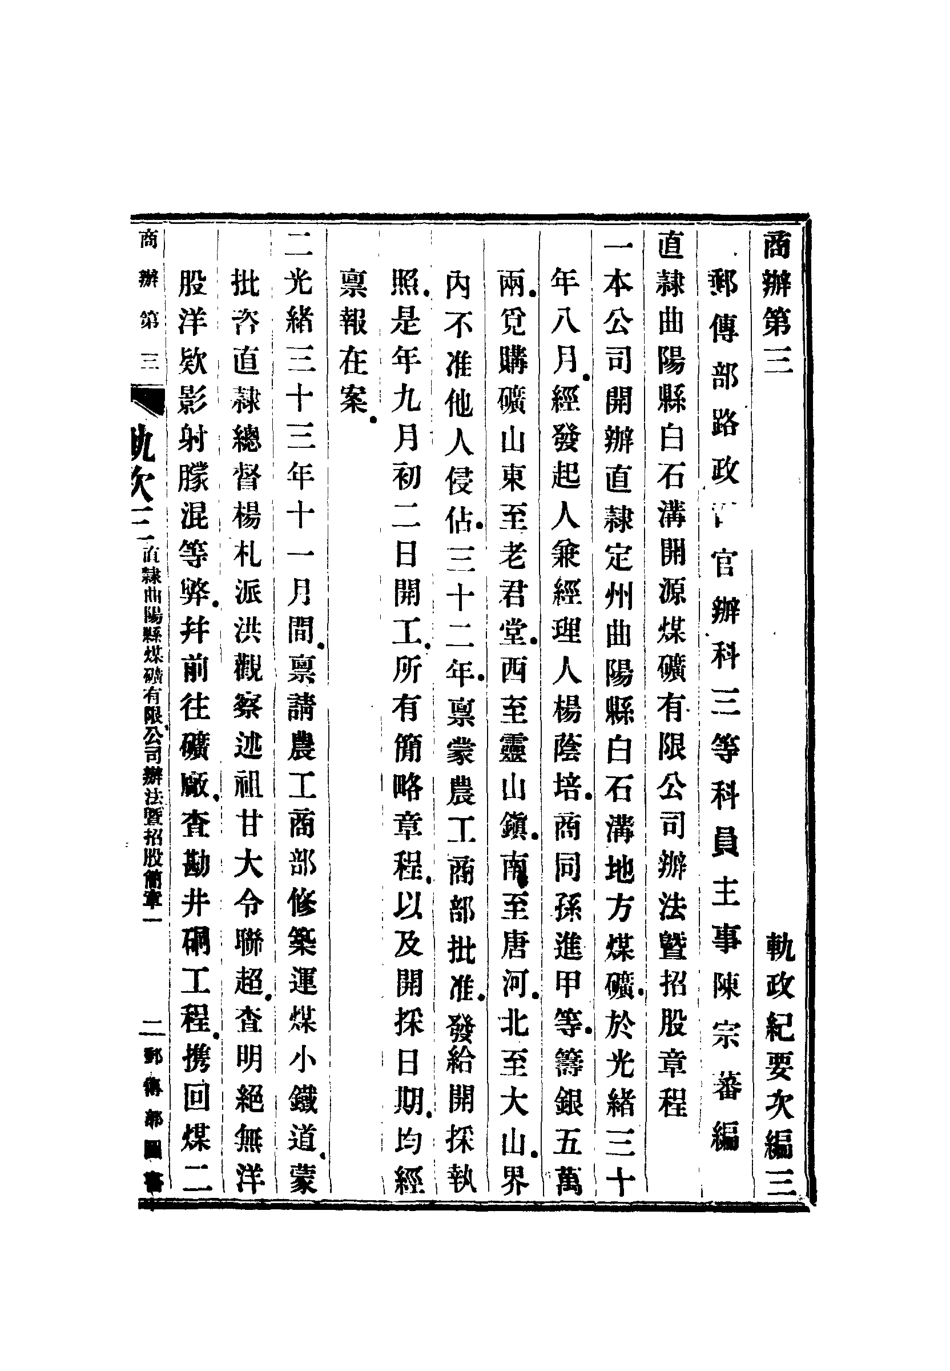 商辦第三　軌政紀要次編三
郵傳部路政官辦科三等科員主事陳宗蕃編
直隸曲陽縣白石溝開源煤礦有限公司辦法暨招股章程
一本公司開辦直隸定州曲陽縣白石溝地方煤礦於光緒三十
年八月經發起人兼經理人楊蔭培商同孫進甲等籌銀五萬
兩覓購礦山東至老君堂西至靈山鎭南至唐河北至大山界
內不准他人侵佔三十二年禀蒙農工商部批准發給開採執
照是年九月初二日開工所有簡略章程以及開採日期均經
禀報在案
二光緒三十三年十一月間禀請農工商部修築運煤小鐵道蒙
批咨直隸總督楊札派洪觀察述祖甘大令聯超查明絕無洋
股洋欵影射朦混等弊幷前往礦廠查勘井硐工程携回煤二
商辦第三　軌次三　直隸曲陽縣煤礦有限公司辦法暨招股簡章一　二　郵傳部圖書